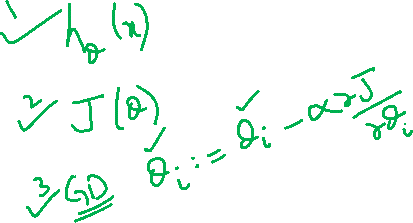 1 ✓ h_θ(x)
2 ✓ J(θ)
3 ✓ GD θ_i := θ_i - α ∂J/∂θ_i